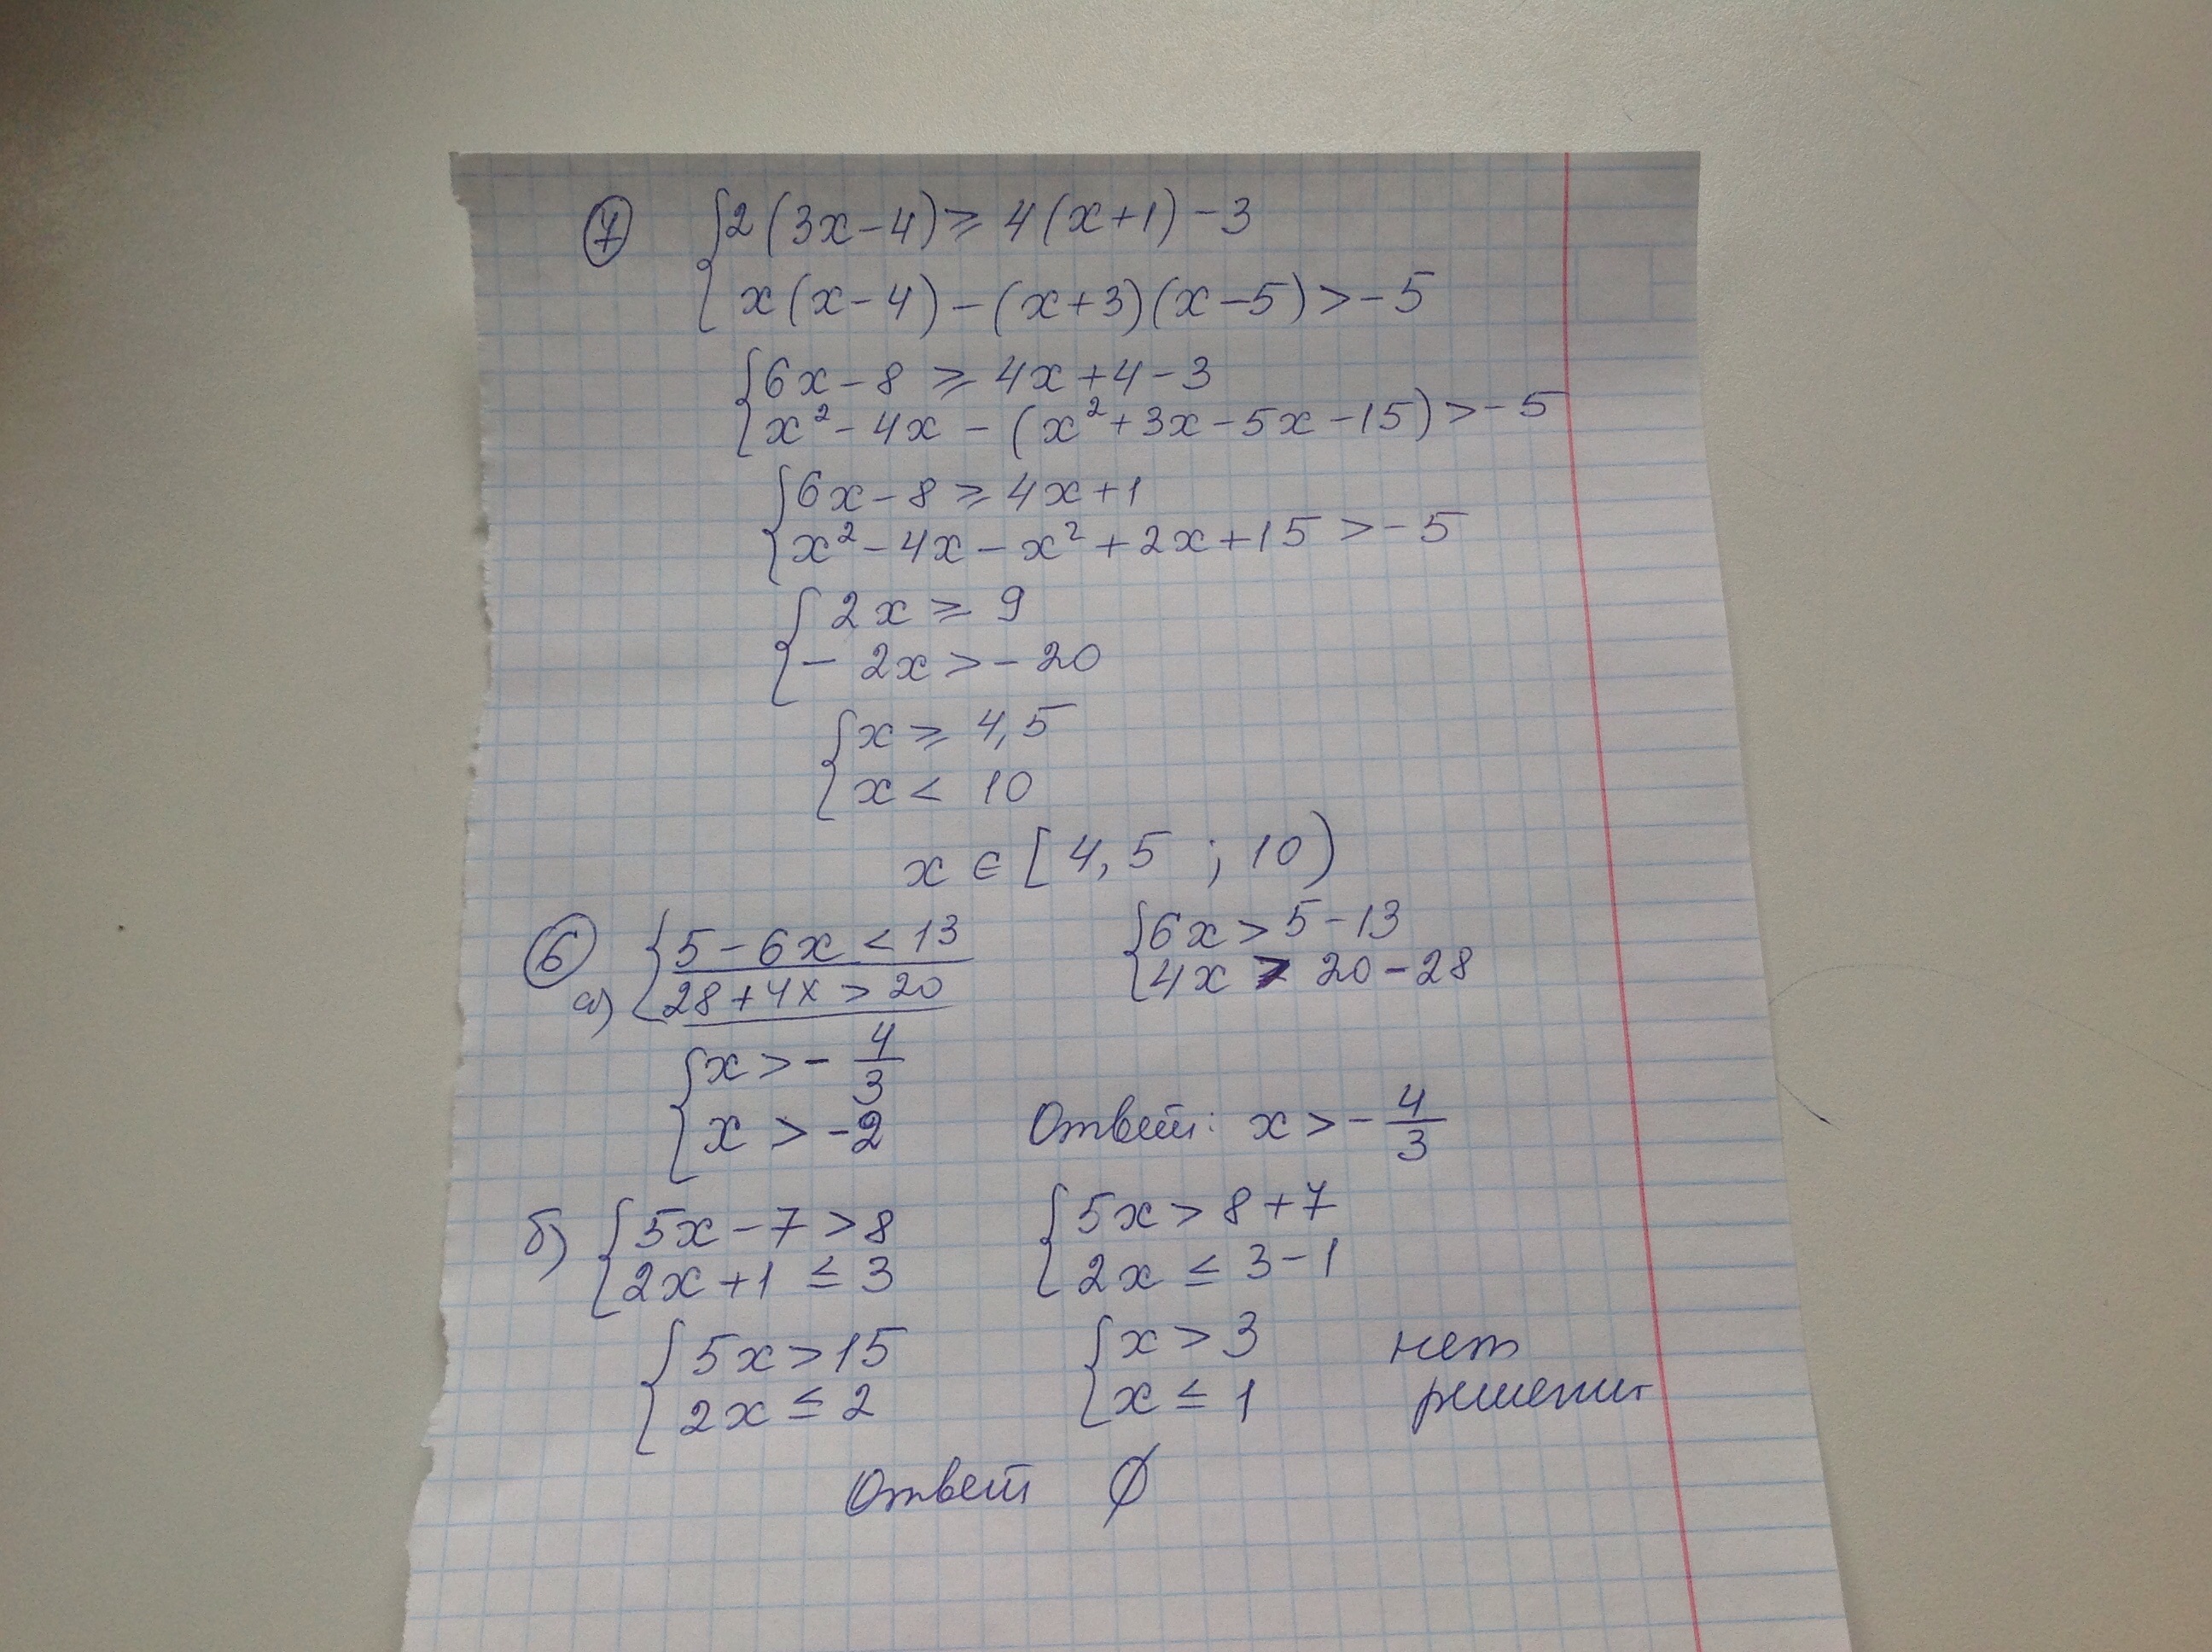 7 { 2(3x-4) ≥ 4(x+1)-3
x(x-4)-(x+3)(x-5)>-5
{ 6x-8 ≥ 4x+4-3
x²-4x-(x²+3x-5x-15)>-5
{ 6x-8 ≥ 4x+1
x²-4x-x²+2x+15>-5
{ 2x ≥ 9
-2x>-20
{ x ≥ 4,5
x < 10
x ∈ [4,5 ; 10)
6 а) { 5-6x < 13
28+4x > 20
{ 6x > 5-13
4x > 20-28
{ x > - 4/3
x > -2
Ответ: x > - 4/3
б) { 5x-7 > 8
2x+1 ≤ 3
{ 5x > 8+7
2x ≤ 3-1
{ 5x > 15
2x ≤ 2
{ x > 3
x ≤ 1
нет
Ответ ∅